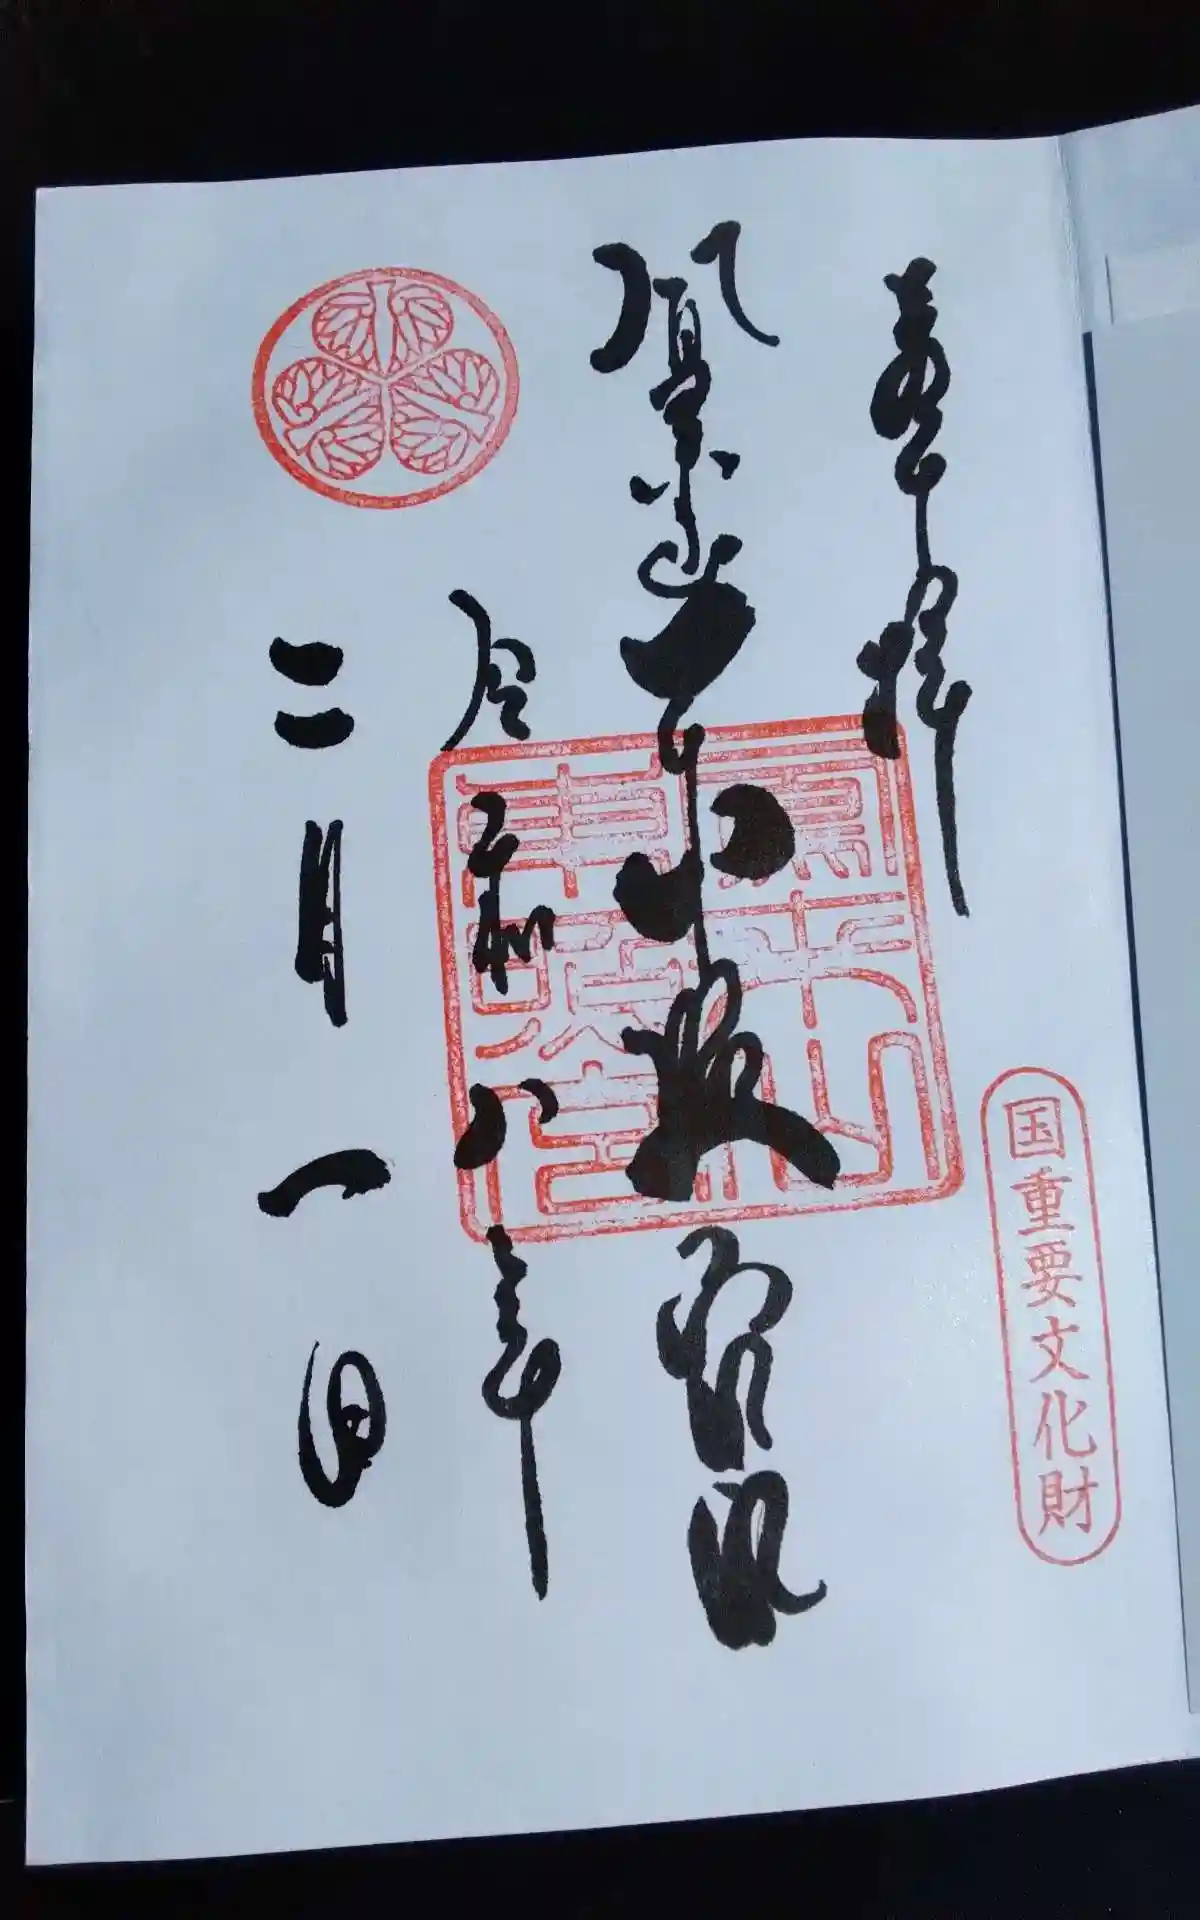 奉拝
国重要文化財
鳳来山東照宮
鳳来山
東照宮
令和八年
二月一日